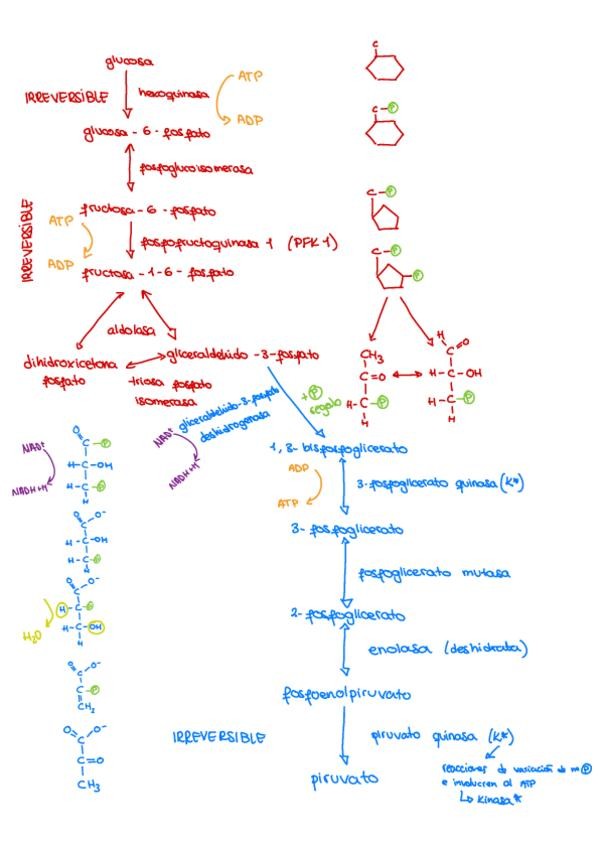 glucosa
IRREVERSIBLE
hexoquinasa
ATP
ADP
glucosa - 6 - fosfato
fosfoglucoisomerasa
fructosa - 6 - fosfato
IRREVERSIBLE
ATP
ADP
fosfofructoquinasa 1 (PFK 1)
fructosa - 1-6 - fosfato
aldolasa
dihidroxicetona
fosfato
gliceraldehido - 3 - fosfato
triosa fosfato
isomerasa
C
C-P
C-P
C-P
P
CH3
C=O
H-C-P
H
H
C=O
H-C-OH
H-C-P
H
gliceraldehido-3-fosfato
deshidrogenasa
+ P
regalo
NAD+
NADH+H+
1, 3- bisfosfoglicerato
ADP
ATP
3-fosfoglicerato quinasa (K*)
3- fosfoglicerato
fosfoglicerato mutasa
2- fosfoglicerato
enolasa (deshidrata)
fosfoenolpiruvato
IRREVERSIBLE
piruvato quinasa (K*)
piruvato
reacciones de variación de nº P
e involucren al ATP
↳ Kinasa*
NAD+
NADH+H+
O
C-P
H-C-OH
H-C-P
H
O
O-
C
H-C-OH
H-C-P
H
O
O-
C
H-C-P
H-C-OH
H
H2O
O
O-
C
C-P
CH2
O
O-
C
C=O
CH3